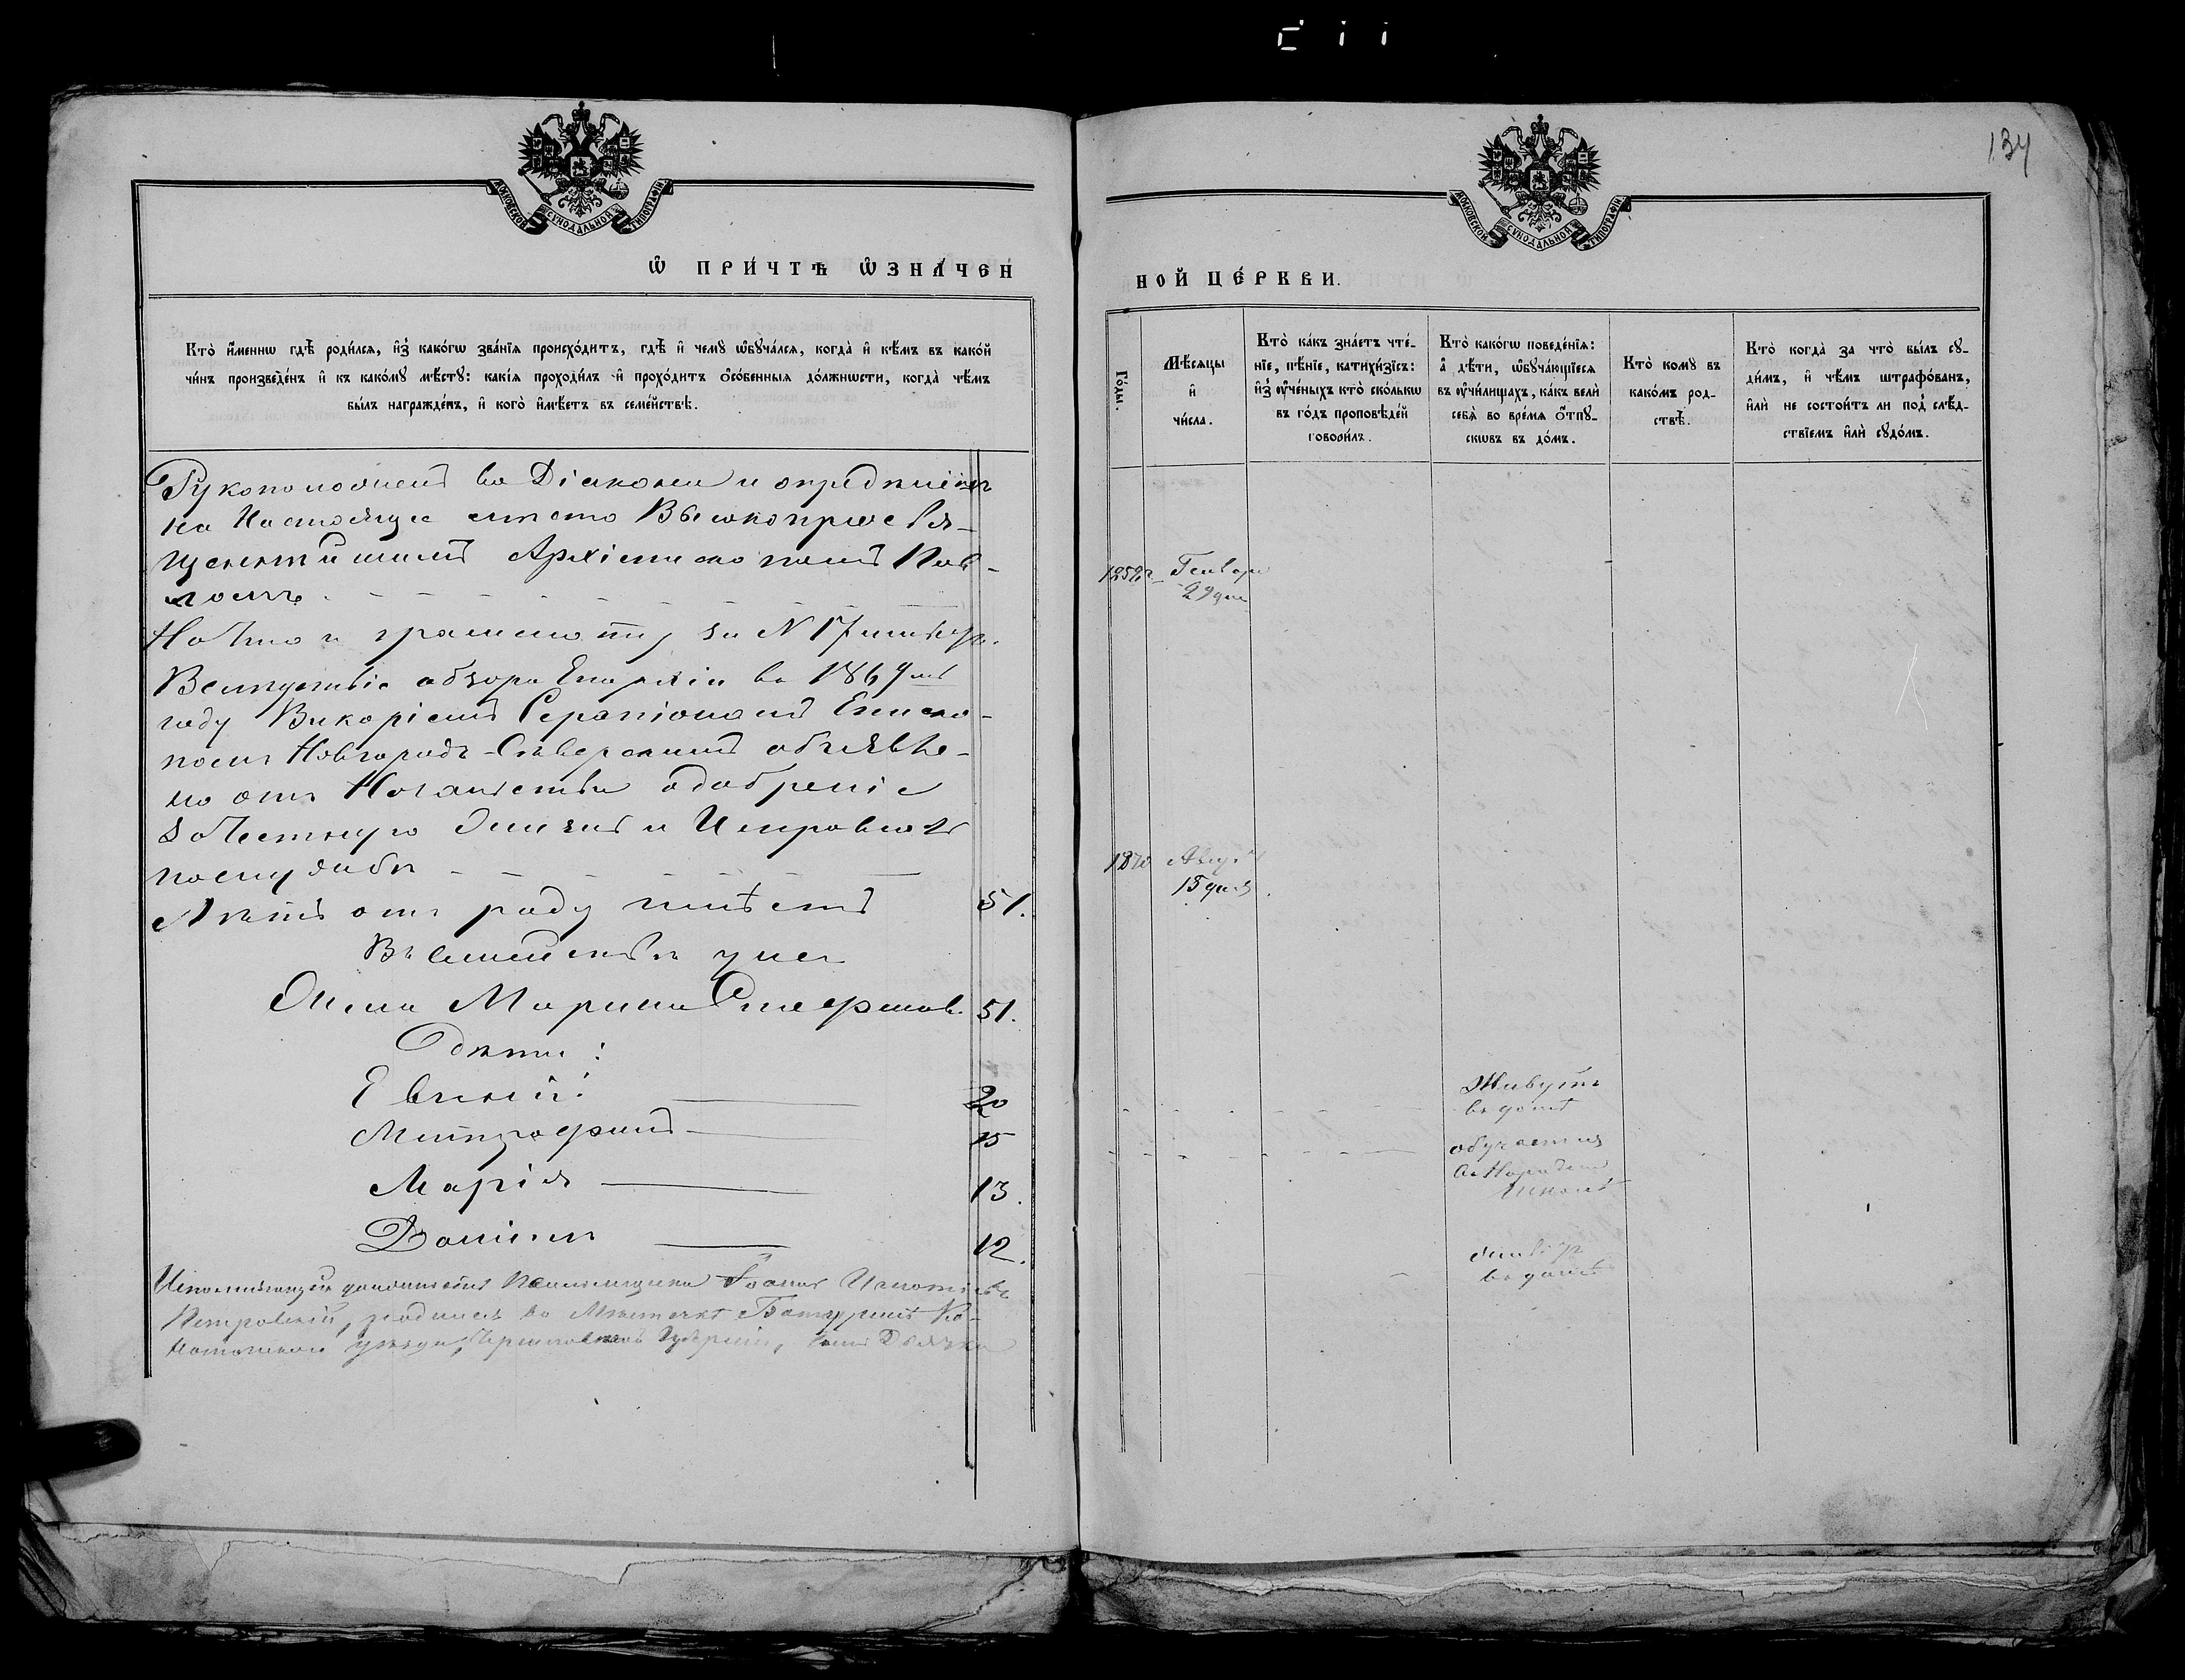 134
МОСКОВСКОЙ СУНОДАЛЬНОЙ ТИПОГРАФІИ
МОСКОВСКОЙ СУНОДАЛЬНОЙ ТИПОГРАФІИ
Ѡ ПРИ́ЧТѢ Ѡ҆ЗНА́ЧЕН
НОЙ ЦЕ́РКВИ.
Кто̀ и҆́меннѡ гдѣ̀ роди́лсѧ, и҆з̾ како́гѡ зва́нїѧ происхо́дитъ, гдѣ̀ и҆ чемꙋ̀ ѡ҆бꙋча́лсѧ, когда̀ и҆ кѣ́мъ въ како́й
чи́нъ произведе́нъ и҆ къ како́мꙋ мѣ́стꙋ: какі́ѧ проходи́лъ и҆ прохо́дитъ ѻ҆со́бенныѧ до́лжнѡсти, когда̀ чѣ́мъ
бы́лъ награжде́нъ, и҆ кого̀ и҆мѣ́етъ въ семе́йствѣ.
Го́ды.
Мѣ́сѧцы
и҆
чи́сла.
Кто̀ ка́къ зна́етъ чте́-
нїе, пѣ́нїе, катихи́зїсъ:
и҆з̾ ᲂу҆че́ныхъ кто̀ ско́лькѡ
въ го́дъ проповѣ́дей
говори́лъ.
Кто̀ како́гѡ поведе́нїѧ:
а҆ дѣ́ти, ѡ҆бꙋча́ющїесѧ
въ ᲂу҆чи́лищахъ, ка́къ велѝ
себѧ̀ во вре́мѧ ѻ҆́тпꙋ-
скѡвъ въ до́мъ.
Кто̀ комꙋ̀ въ
како́мъ род-
ствѣ̀.
Кто̀ когда̀ за что̀ бы́лъ сꙋ-
ди́мъ, и҆ чѣ́мъ штрафо́ванъ,
и҆лѝ не состои́тъ ли под̾ слѣ́д-
ствїемъ и҆лѝ сꙋдо́мъ.
Рукоположенъ во Діакона и опредѣленъ
на Настоящее мѣсто Высокопреосвя-
щеннѣйшимъ Архіепископомъ Пав-
ломъ
1852г. Генваря
29 дня
На что и грамоту за N 17 имѣетъ.
Вслѣдствіе обзора Епархіи въ 1869мъ
году Викаріемъ Серапіономъ Еписко-
помъ Новгородъ-Сѣверскимъ объявле-
но отъ Начальства одобреніе
за Честную жизнь и Исправность
по службѣ
1870 Август
15 дня.
Лѣтъ отъ роду имѣетъ 51.
Въ семействѣ у него
Жена Марина Стефанов. 51.
Дѣти:
Евгеній 20
Живутъ
въ домѣ
Митрофанъ 15
обучается
въ Народной
Школѣ
Марія 13.
Даніилъ 12.
живутъ
въ домѣ
Исполняющій должность Псаломщика Іоаннъ Игнатіевъ
Петровскій, родился въ Мѣстечкѣ Батуринѣ Ко-
нотопскаго уѣзда, Черниговской Губерніи, сынъ Дьячка